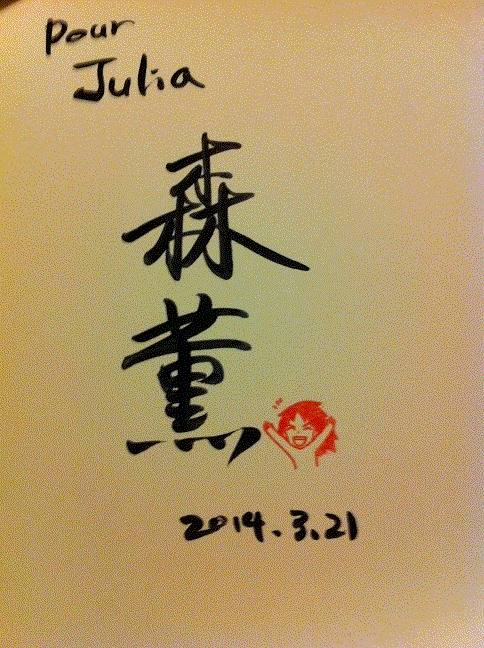 Pour
Julia
森
薫
2014.3.21